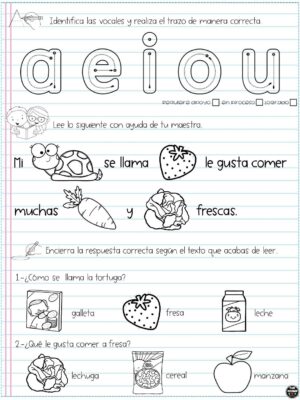 Identifica las vocales y realiza el trazo de manera correcta.
a e i o u
Requiere apoyo en proceso logrado
Lee lo siguiente con ayuda de tu maestra.
Mi se llama le gusta comer
muchas y frescas.
Encierra la respuesta correcta según el texto que acabas de leer.
1.-¿Cómo se llama la tortuga?
galleta fresa leche
2.-¿Qué le gusta comer a fresa?
lechuga cereal manzana